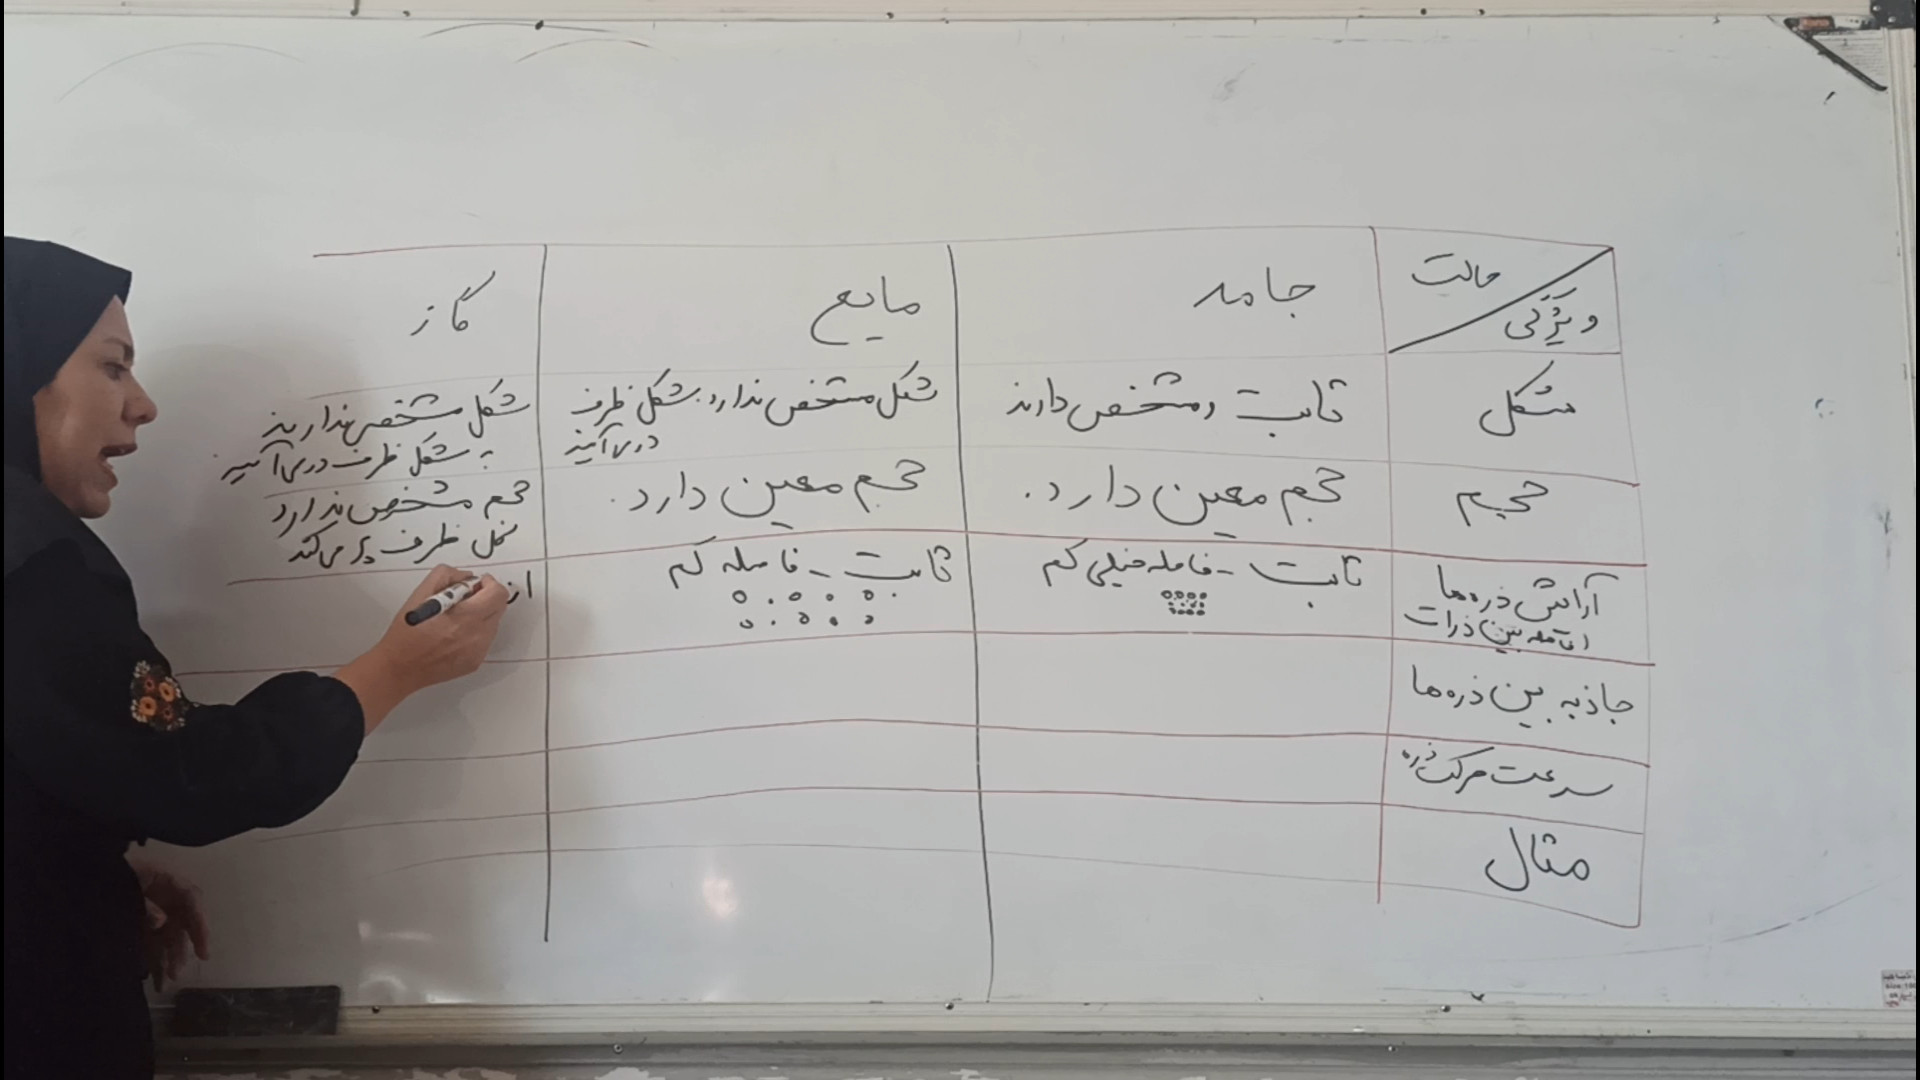 حالت
ویژگی
جامد
مایع
گاز
شکل
ثابت و مشخص دارند
شکل مشخص ندارد. بشکل ظرف
در می آیند
شکل مشخص ندارند
به شکل ظرف در می آیند
حجم
حجم معین دارد.
حجم معین دارد.
حجم مشخص ندارد
کل ظرف پر می کند
آرایش ذره ها
(فاصله بین ذرات
ثابت - فاصله خیلی کم
ثابت - فاصله کم
از
جاذبه بین ذره ها
سرعت حرکت ذره
مثال